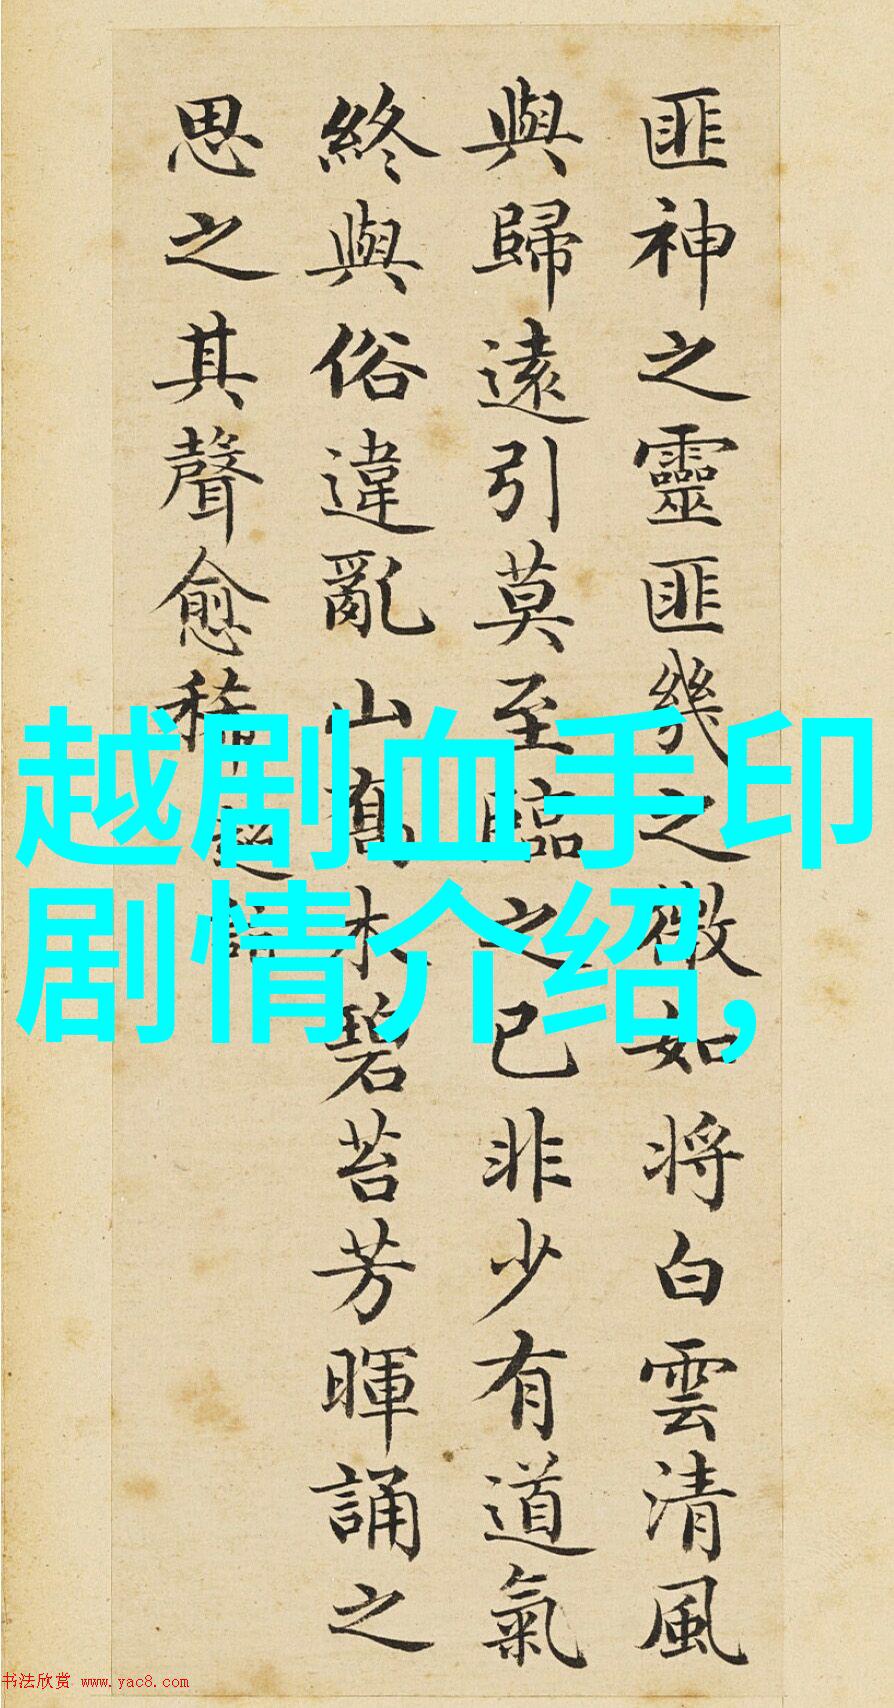 匪神之靈匪匪幾之微如將白雲清風
與歸遠引莫至臨之已非少有道氣
終與俗違亂山喬木碧苔芳暉誦之
思之其聲愈稀
越剧血手印
剧情介绍,
书法欣赏 www.yac8.com